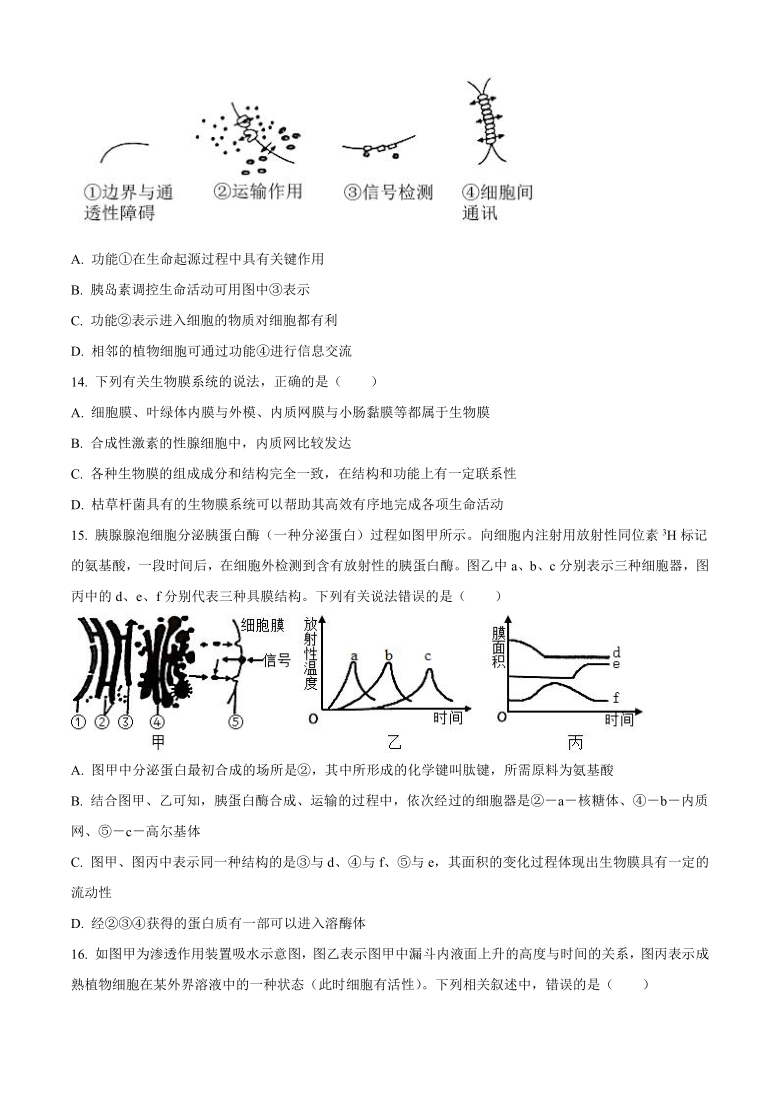 ①边界与通
透性障碍
②运输作用
③信号检测
④细胞间
通讯
A. 功能①在生命起源过程中具有关键作用
B. 胰岛素调控生命活动可用图中③表示
C. 功能②表示进入细胞的物质对细胞都有利
D. 相邻的植物细胞可通过功能④进行信息交流
14. 下列有关生物膜系统的说法，正确的是（　　）
A. 细胞膜、叶绿体内膜与外模、内质网膜与小肠黏膜等都属于生物膜
B. 合成性激素的性腺细胞中，内质网比较发达
C. 各种生物膜的组成成分和结构完全一致，在结构和功能上有一定联系性
D. 枯草杆菌具有的生物膜系统可以帮助其高效有序地完成各项生命活动
15. 胰腺腺泡细胞分泌胰蛋白酶（一种分泌蛋白）过程如图甲所示。向细胞内注射用放射性同位素 ³H 标记
的氨基酸，一段时间后，在细胞外检测到含有放射性的胰蛋白酶。图乙中 a、b、c 分别表示三种细胞器，图
丙中的 d、e、f 分别代表三种具膜结构。下列有关说法错误的是（　　）
细胞膜
信号
① ② ③ ④ ⑤
甲
放射性温度
a b c
O 时间
乙
膜面积
d
e
f
O 时间
丙
A. 图甲中分泌蛋白最初合成的场所是②，其中所形成的化学键叫肽键，所需原料为氨基酸
B. 结合图甲、乙可知，胰蛋白酶合成、运输的过程中，依次经过的细胞器是②－a－核糖体、④－b－内质
网、⑤－c－高尔基体
C. 图甲、图丙中表示同一种结构的是③与 d、④与 f、⑤与 e，其面积的变化过程体现出生物膜具有一定的
流动性
D. 经②③④获得的蛋白质有一部可以进入溶酶体
16. 如图甲为渗透作用装置吸水示意图，图乙表示图甲中漏斗内液面上升的高度与时间的关系，图丙表示成
熟植物细胞在某外界溶液中的一种状态（此时细胞有活性）。下列相关叙述中，错误的是（　　）